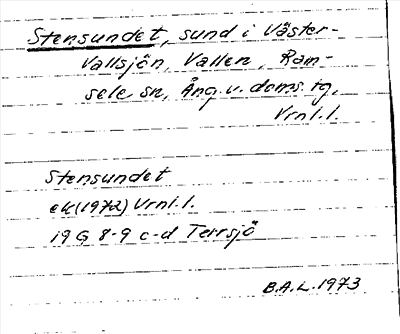 Stensundet, sund i Väster-
Vallsjön, Vallen, Ram-
sele sn, Ång. v. doms. tg,
Vrnl. l.
Stensundet
ek (1972) Vrnl. l.
19 G 8-9 c-d Terrsjö
B.A.L. 1973